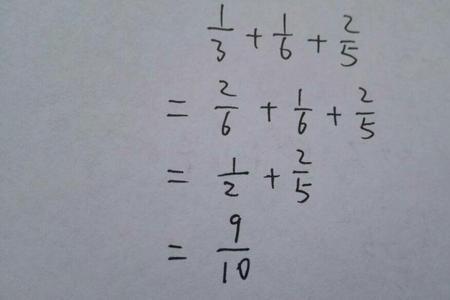 1/3 + 1/6 + 2/5
= 2/6 + 1/6 + 2/5
= 1/2 + 2/5
= 9/10